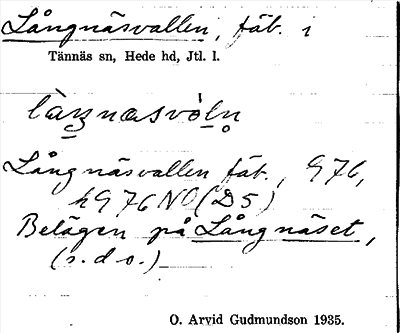 Långnäsvallen, fäb. i
Tännäs sn, Hede hd, Jtl. l.
làṉnasvòln̥
Långnäsvallen fäb., G76,
hG76NO(D5)
Belägen på Långnäset,
(s.d.o.)
O. Arvid Gudmundson 1935.